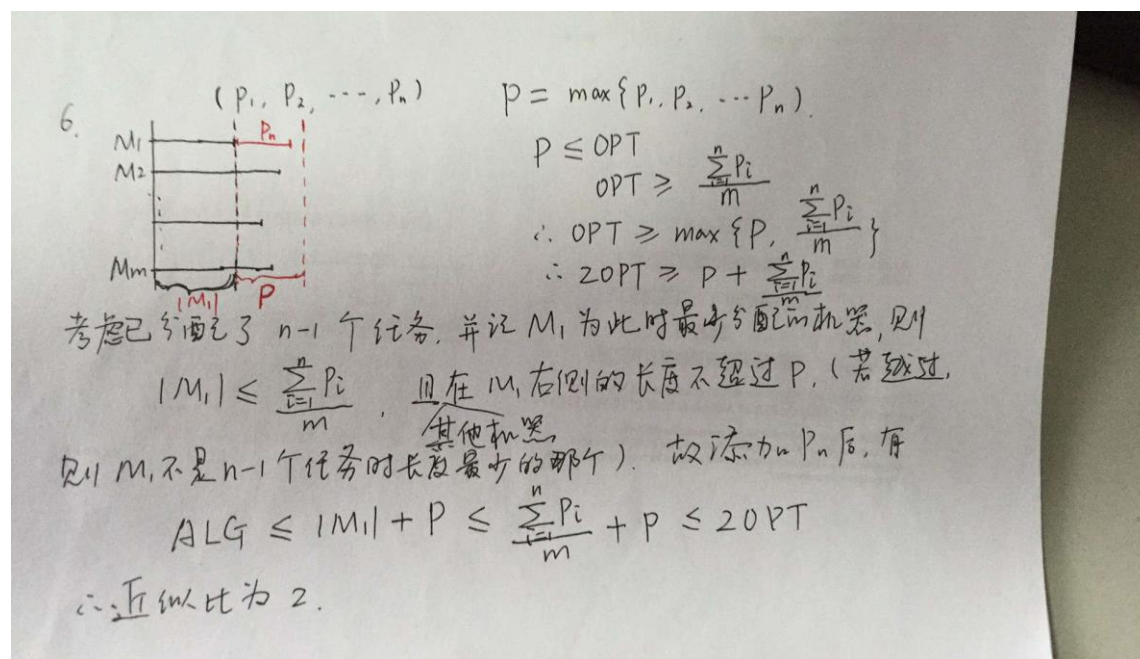 6.
(P₁, P₂, ---, Pₙ)
M₁ Pₙ
M₂
Mm
|M₁| P
P = max{P₁, P₂, ... Pₙ).
P ≤ OPT
OPT ≥ \frac{\sum_{i=1}^{n} P_i}{m}
∴ OPT ≥ max{P, \frac{\sum_{i=1}^{n} P_i}{m}}
∴ 2OPT ≥ P + \frac{\sum_{i=1}^{n} P_i}{m}
考虑已分配了 n-1 个任务, 并记 M₁ 为此时最少分配的机器, 则
|M₁| ≤ \frac{\sum_{i=1}^{n} P_i}{m}, 且在 M₁ 右侧的长度不超过 P. (若越过,
其他机器
则 M₁ 不是 n-1 个任务时长度最少的那个). 故添加 Pₙ 后, 有
ALG ≤ |M₁| + P ≤ \frac{\sum_{i=1}^{n} P_i}{m} + P ≤ 2OPT
∴ 近似比为 2.